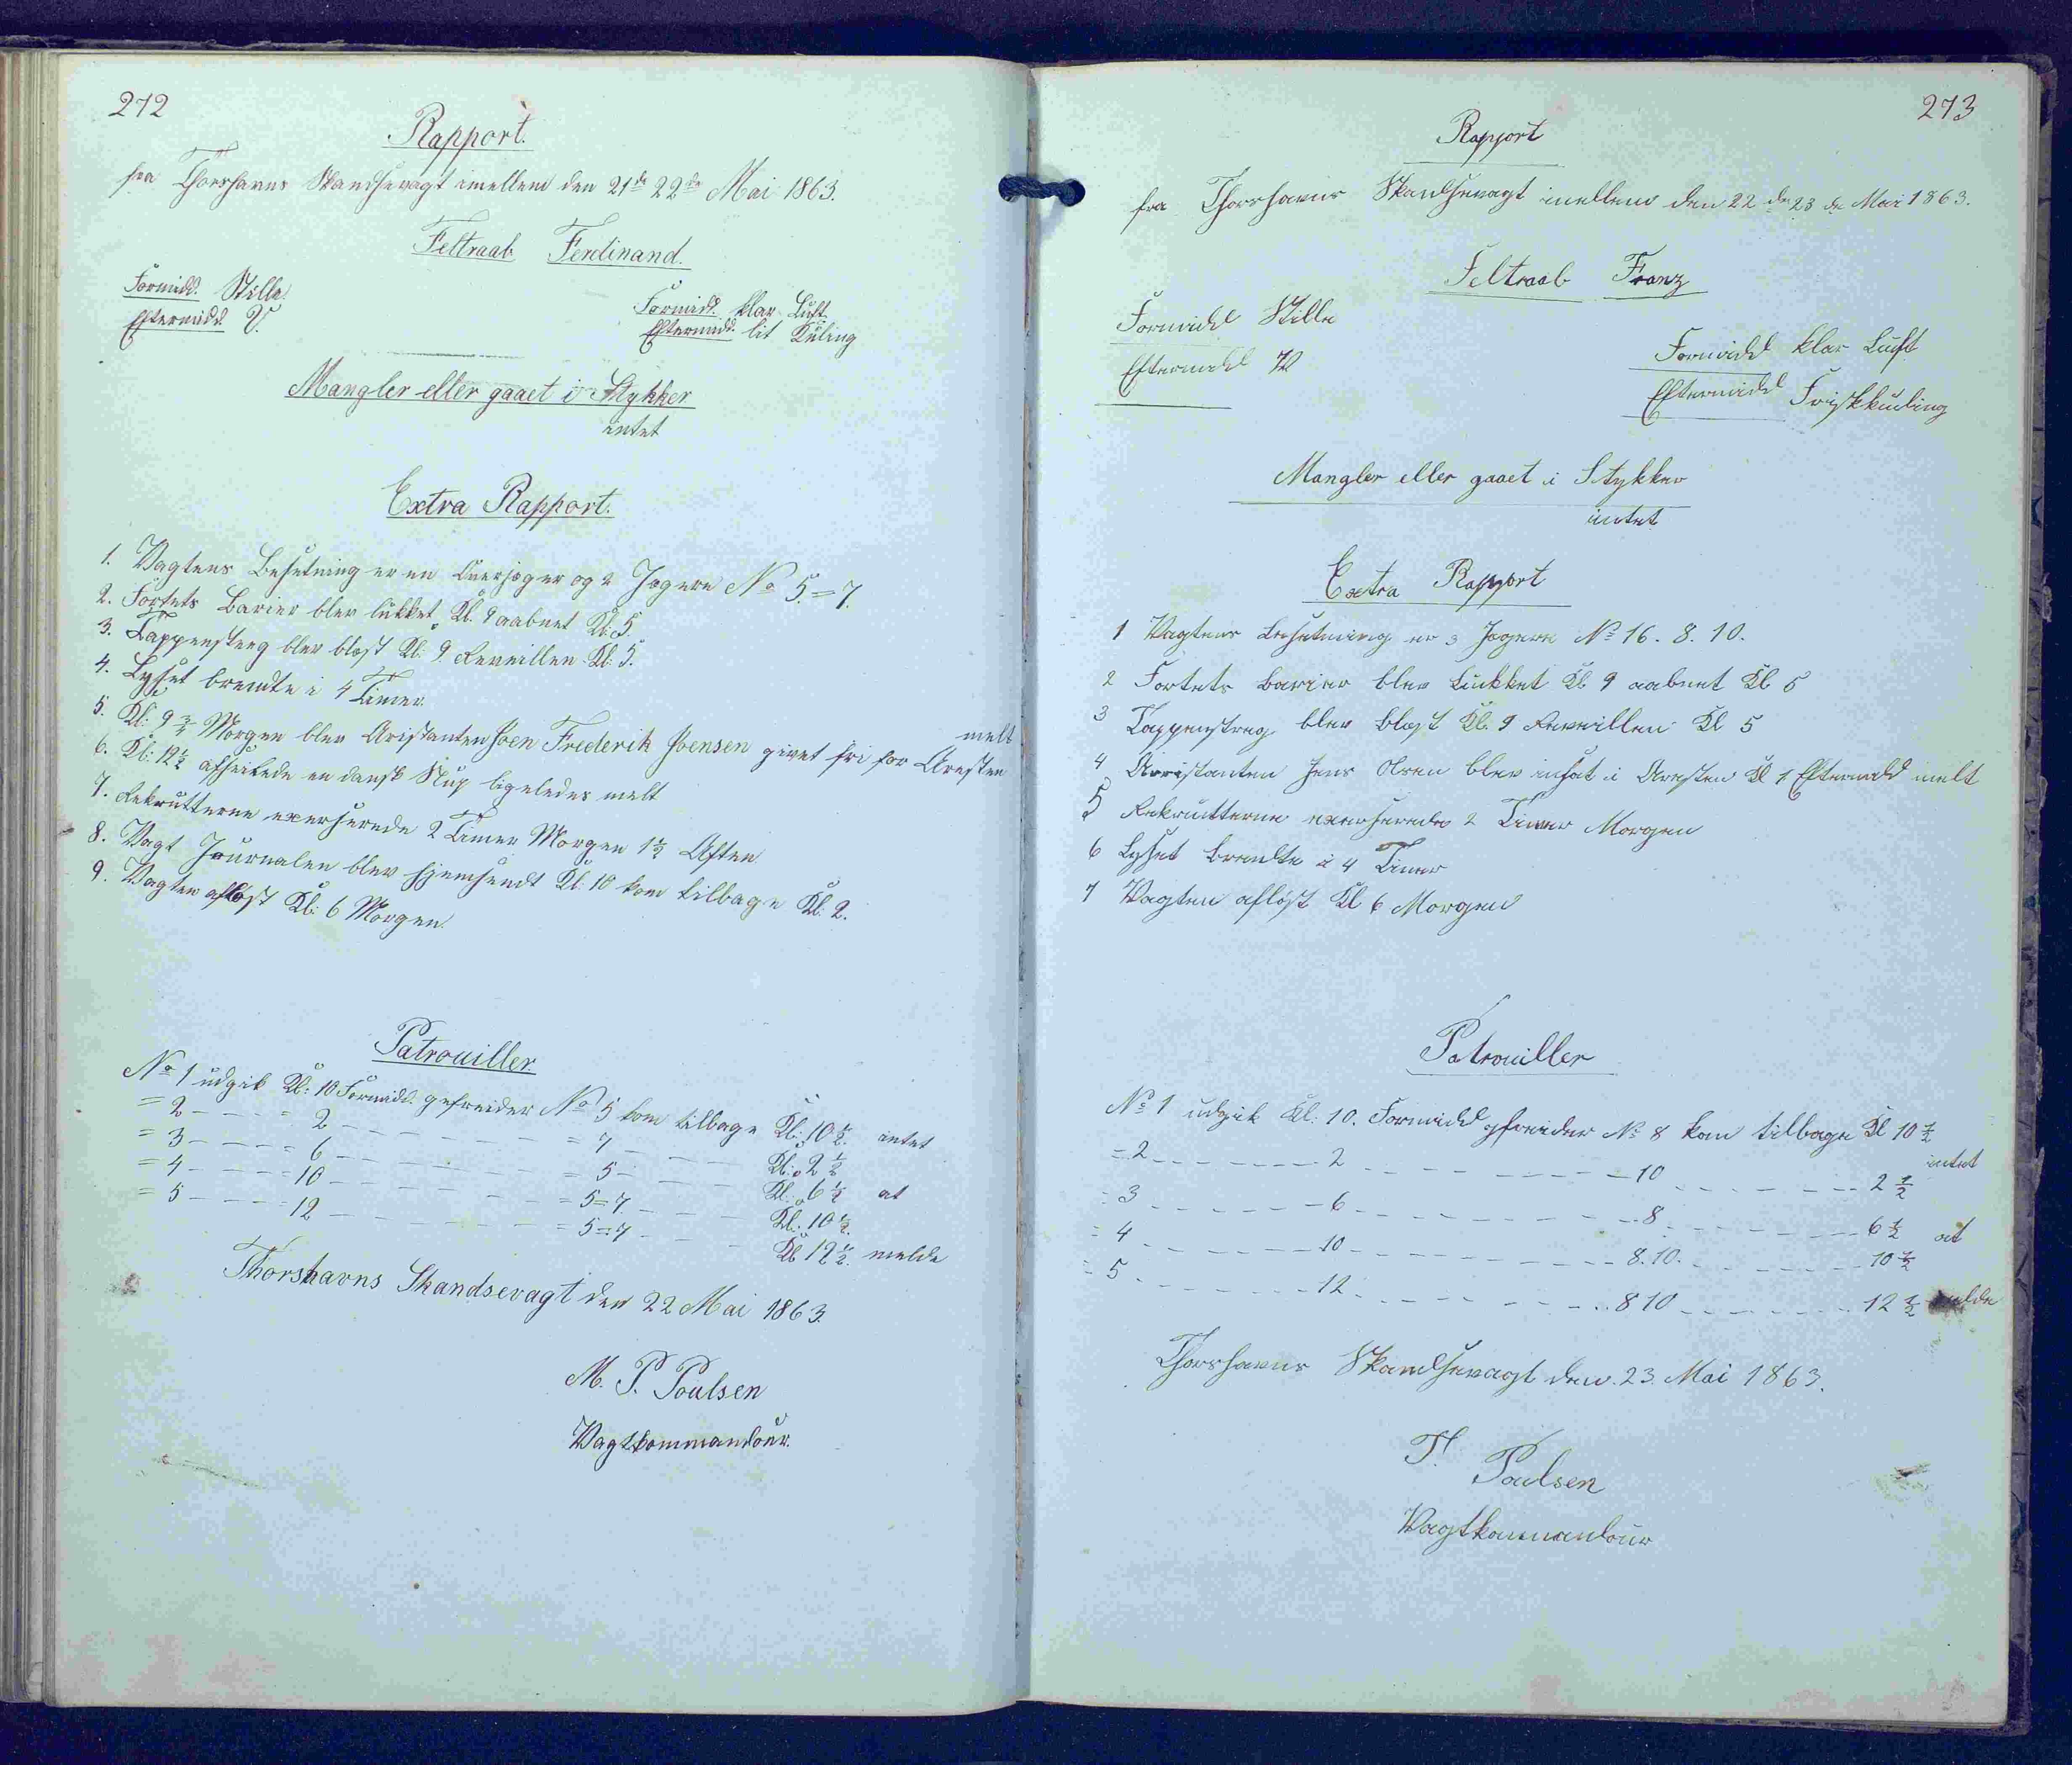 272
Rapport.
fra Thorshavns Skandsevagt imellem den 21de 22de Mai 1863.
Feltraab Ferdinand.
Formidd. Stille
Eftermidd. V.
Formidd. klar Luft.
Eftermidd. lit Kuling
Mangler eller gaaet i Stykker
intet
Extra Rapport.
1. Vagtens Besetning er en Overjæger og 2 Jegere No 5.=7.
2. Fortets Barier blev lukket Kl. 9 aabnet Kl: 5.
3. Tappenstreg blev blest Kl: 9. Reveillen Kl: 5.
4. Lyset brendte i 4 Timer.
5. Kl: 9 3/4 Morgen blev Aristanten Joen Frederik Joensen givet fri for Aresten melt
6. Kl: 12 1/2 afseilede en dansk Slup ligeledes melt
7. Rekrutterne exerserede 2 Timer Morgen 1 1/2 Aften
8. Vagt Journalen blev hjemsendt Kl: 10 kom tilbage Kl: 2.
9. Vagten aflost Kl: 6 Morgen.
Patrouiller.
No 1 udgik Kl: 10 Formidd. gefreider No 5 kom tilbage Kl: 10 1/2. intet
= 2 - - - - = 2 - - - - - - = 7 - - - Kl: 2 1/2
= 3 - - - - = 6 - - - - - - = 5 - - - Kl: 6 1/2 at
= 4 - - - - = 10 - - - - - - = 5=7. - - - Kl: 10 1/2.
= 5 - - - - = 12 - - - - - - = 5=7 - - - Kl 12 1/2. melde
Thorshavns Skandsevagt den 22 Mai 1863.
M. P. Poulsen
Vagtkommandeur.
273
Rapport
fra Thorshavns Skandsevagt imellem den 22 de 23 de Mai 1863.
Feltraab Franz
Formidd Stille
Eftermidd
Formidd klar Luft
Eftermidd Friskkuling
Mangler eller gaaet i Stykker
intet
Extra Rapport
1 Vagtens Besetning er 3 Jegere No 16. 8. 10.
2 Fortets Barier blev Lukket Kl 9 aabnet Kl 5
3 Tappenstreg blev blest Kl. 9 Reveillen Kl 5
4 Arristanten Jens Olsen blev insat i Arresten Kl 1 Eftermidd melt
5 Rekrutterne exerserede 2 Timer Morgen
6 Lyset brendte i 4 Timer
7 Vagten aflöst Kl 6 Morgen
Patrouiller
No 1 udgik Kl: 10. Formidd gfreider No 8 kom tilbage Kl 10 1/2
intet
= 2 - - - - - - 2 - - - - - - - 10 - - - - - 2 1/2
= 3 - - - - - - 6 - - - - - - - 8 - - - - - 6 1/2 at
= 4 - - - - - - 10 - - - - - - - 8.10. - - - - - 10 1/2
= 5 - - - - - - 12 - - - - - - - 8 10 - - - - - 12 1/2 melde
Thorshavns Skandsevagt den. 23. Mai 1863.
T. Poulsen
Vagtkommandeur